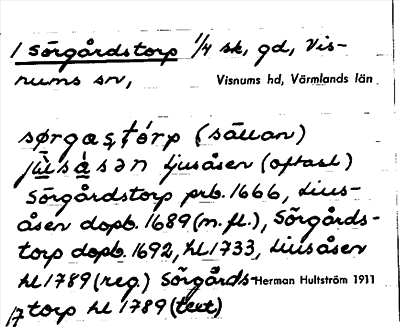 1 Sörgårdstorp 1/4 sk, gd, Vis-
nums sn,
Visnums hd, Värmlands län
sørgas,tórp (sällan)
jùsàsən Ljusåsen (oftast)
Sörgårdstorp prb. 1666, Lius-
åsen dopb. 1689 (m.fl.), Sörgårds-
torp dopb. 1692, hl 1733, Liusåsen
hl 1789 (reg.) Sörgårds-
Herman Hultström 1911
torp hl 1789 (text)